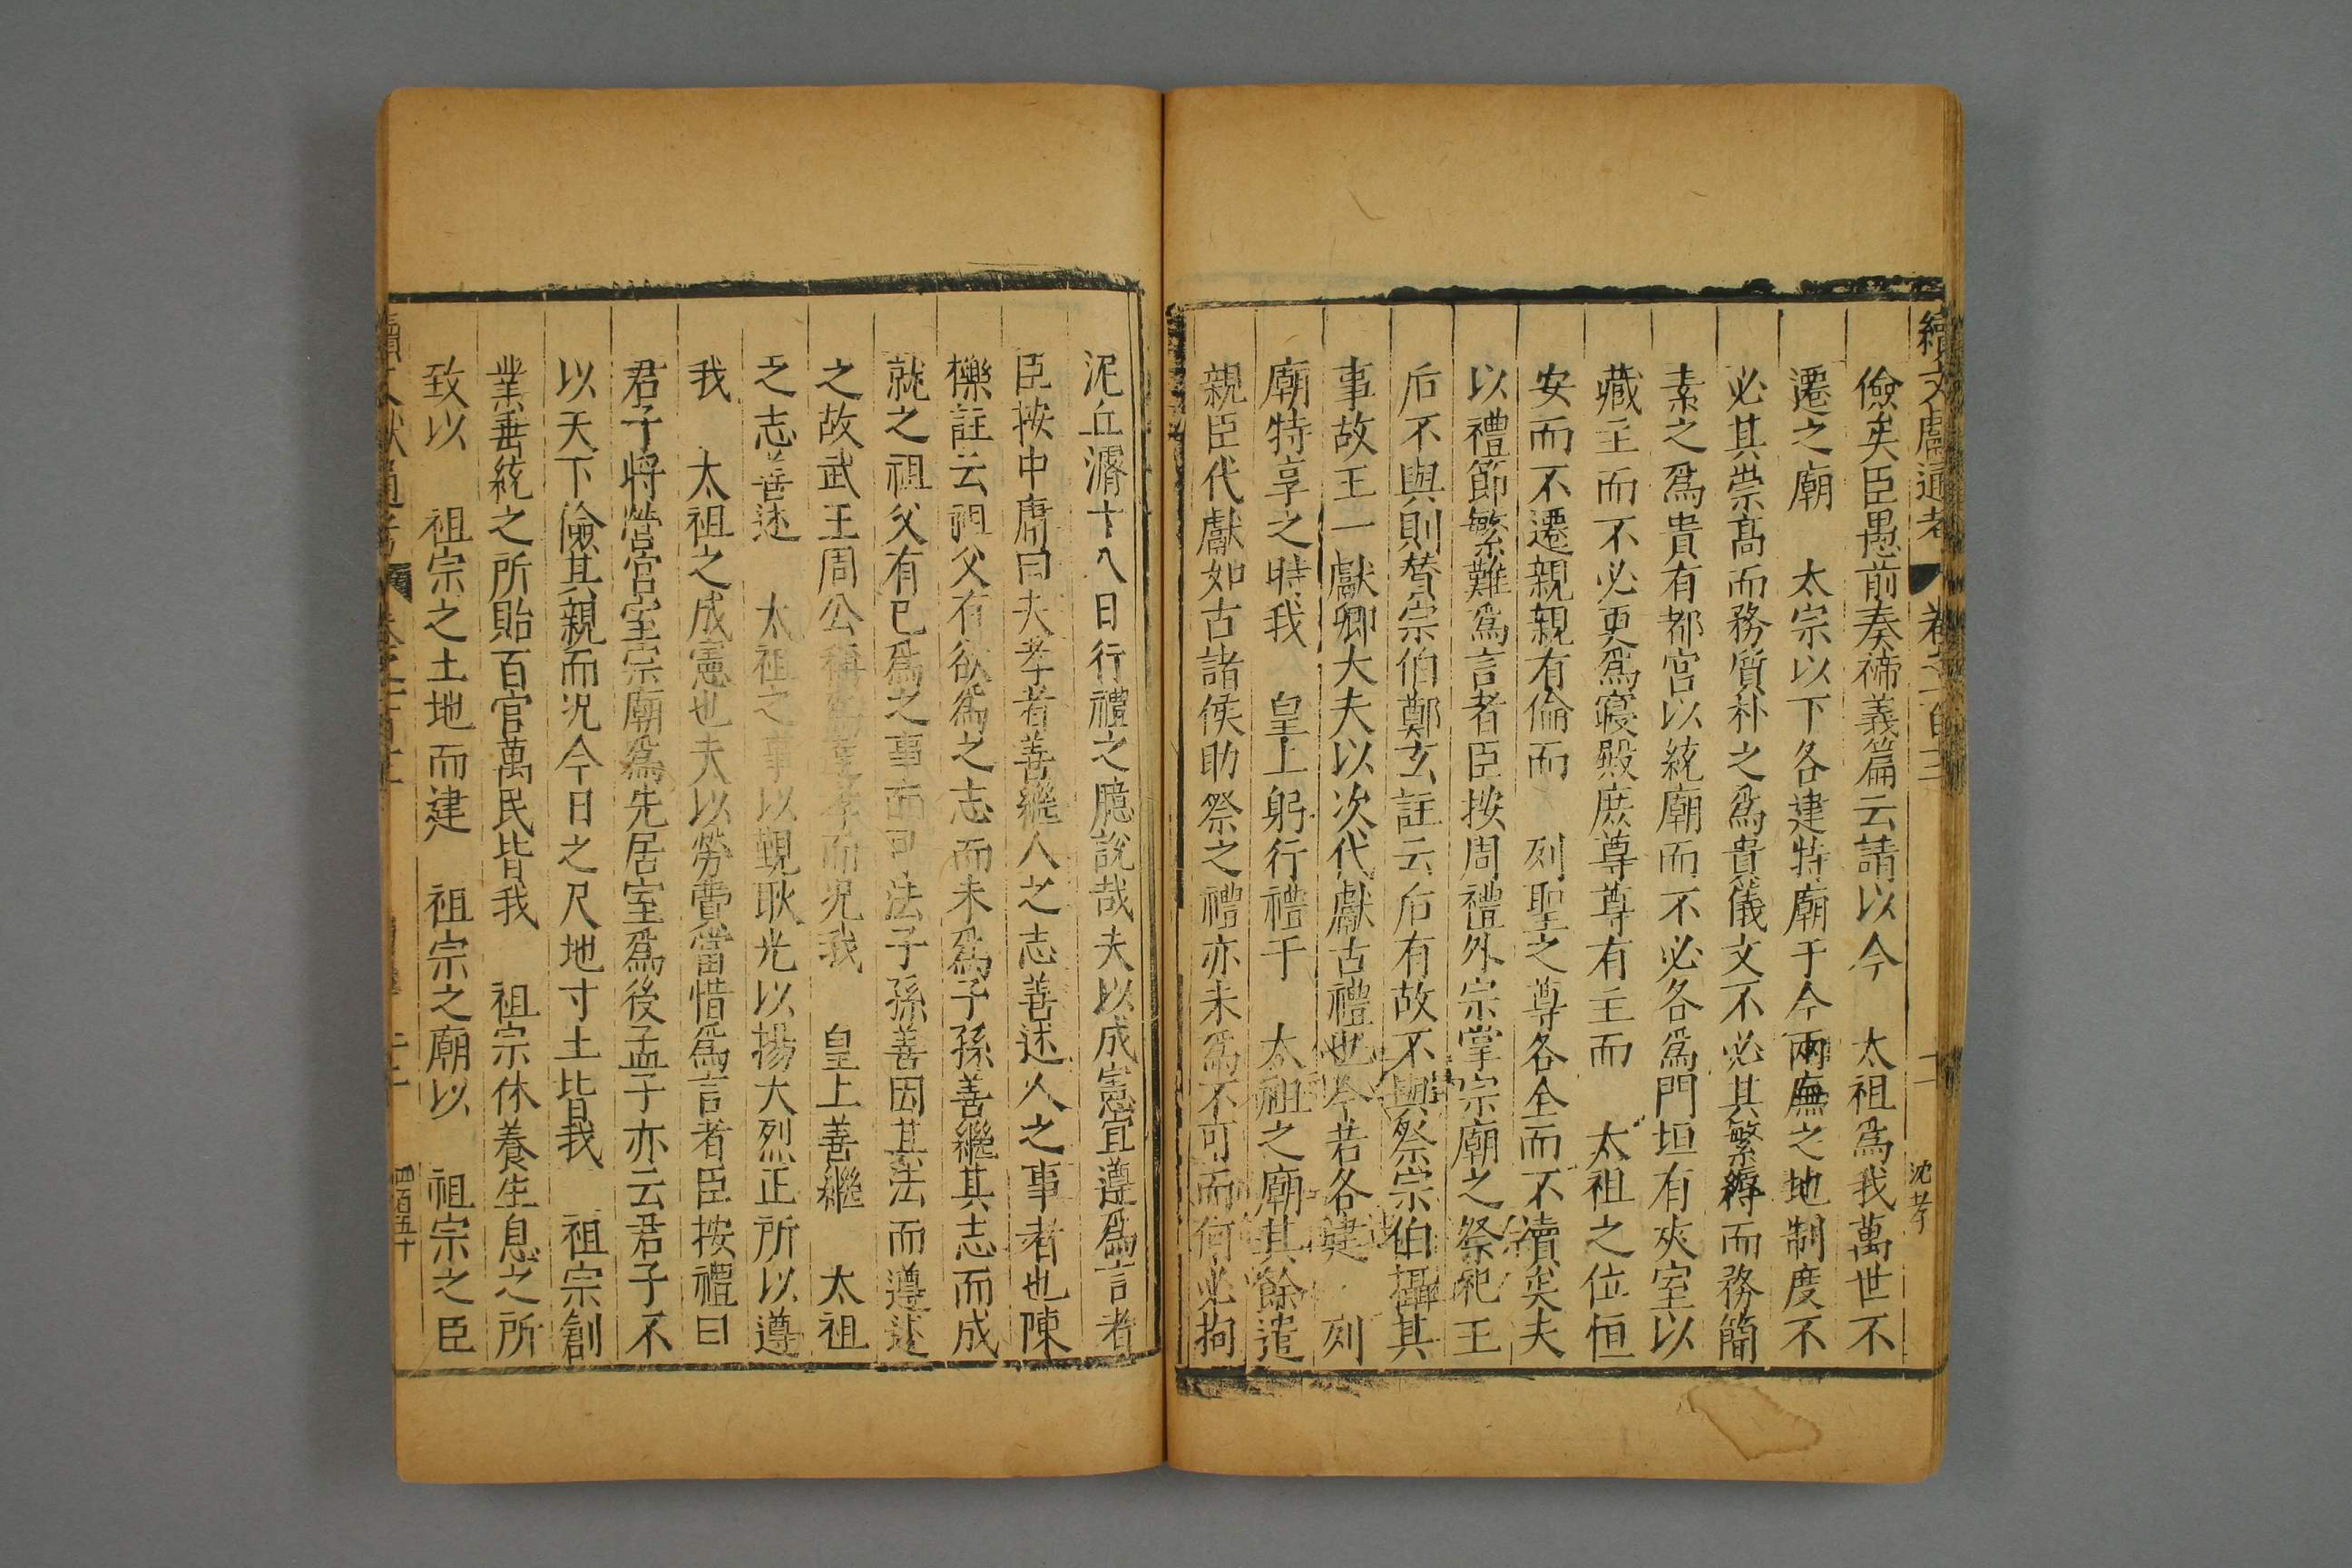 續文獻通考 卷之一百十三 十一 沈孝
儉矣臣愚前奏禘義篇云請以今 太祖爲我萬世不
遷之廟 太宗以下各建特廟于今兩廡之地制度不
必其崇高而務質朴之爲貴儀文不必其繁縟而務簡
素之爲貴有都宮以統廟而不必各爲門垣有夾室以
藏主而不必更爲寢殿庶尊尊有主而 太祖之位恒
安而不遷親親有倫而 列聖之尊各全而不瀆矣夫
以禮節繁難爲言者臣按周禮外宗掌宗廟之祭祀王
后不與則贊宗伯鄭玄註云后有故不與祭宗伯攝其
事故王一獻卿大夫以次代獻古禮也今若各建 列
廟特享之時我 皇上躬行禮于 太祖之廟其餘遣
親臣代獻如古諸侯助祭之禮亦未爲不可而何必拘
泥丘濬十八日行禮之臆說哉夫以成憲宜遵爲言者
臣按中庸曰夫孝者善繼人之志善述人之事者也陳
櫟註云祖父有欲爲之志而未爲子孫善繼其志而成
就之祖父有已爲之事而可法子孫善因其法而遵述
之故武王周公稱爲達孝而況我 皇上善繼 太祖
之志善述 太祖之事以觀耿光以揚大烈正所以遵
我 太祖之成憲也夫以勞費當惜爲言者臣按禮曰
君子將營宮室宗廟爲先居室爲後孟子亦云君子不
以天下儉其親而况今日之尺地寸土皆我 祖宗創
業垂統之所貽百官萬民皆我 祖宗休養生息之所
致以 祖宗之土地而建 祖宗之廟以 祖宗之臣
續文獻通考 十一 四百五十